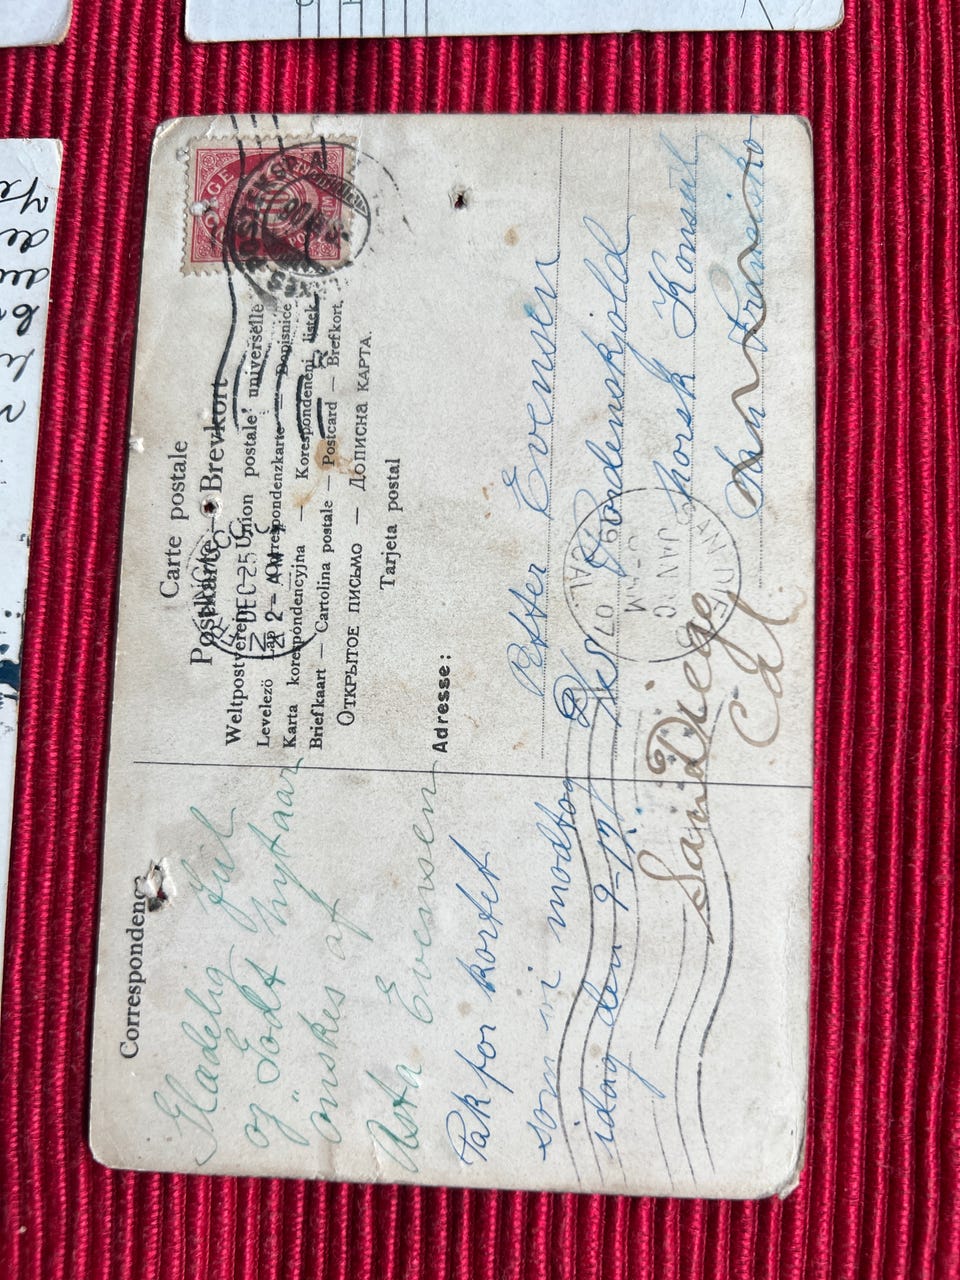 Carte postale
Postkarte — Brevkort
Weltpostverein Union postale universelle
Levelező Lap — Correspondenzkarte — Dopisnice
Karta korespondencyjna — Korespondenční lístek
Briefkaart — Cartolina postale — Postcard — Brefkort.
Открытое письмо — Дописна карта.
Tarjeta postal
Adresse:
Petter Evensen
Sks Tordenskjold
Norsk Konsul
San Fransisko
San Diego
Cal
DEC 25
2 – AM
JAN
SAN DIEGO
CAL.
07
Correspondenz
Glædelig Jul
og Godt Nytaar
önskes af
Asta Evensen
Tak for kortet
som vi modtog
idag den 9-12